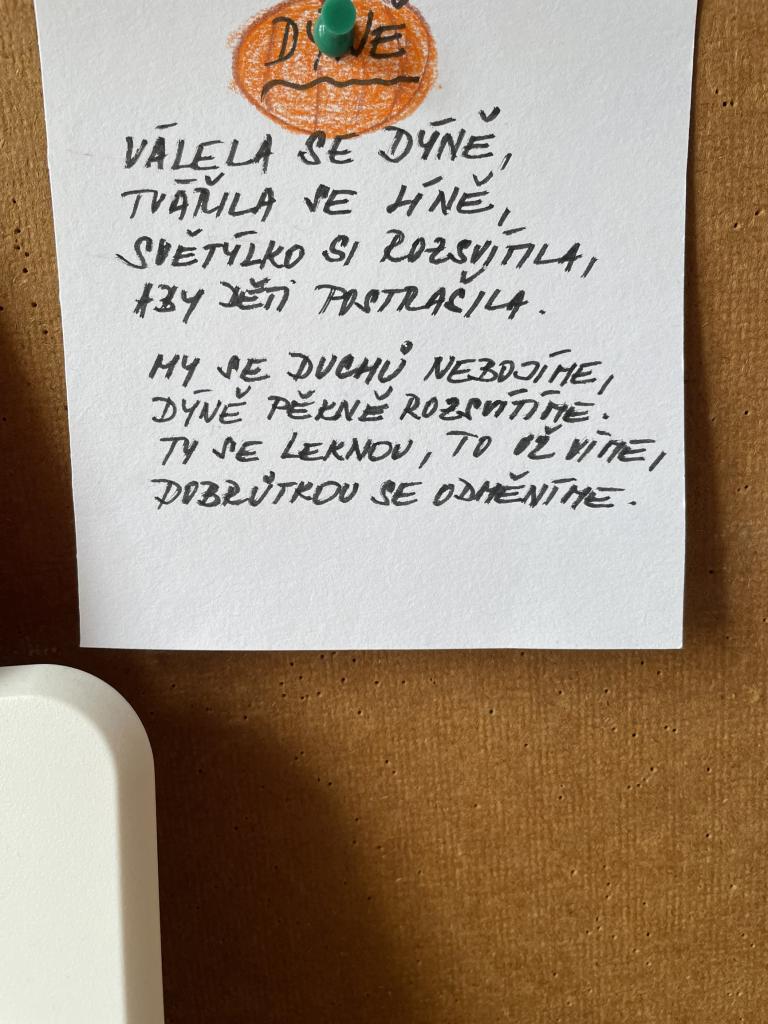 DÝNĚ
VÁLELA SE DÝNĚ,
TVÁŘILA SE LÍNĚ,
SVĚTÝLKO SI ROZSVÍTILA,
ABY DĚTI POSTRAŠILA.
MY SE DUCHŮ NEBOJÍME,
DÝNĚ PĚKNĚ ROZSVÍTÍME.
TY SE LEKNOU, TO UŽ VÍME,
DOBRŮTKOU SE ODMĚNÍME.